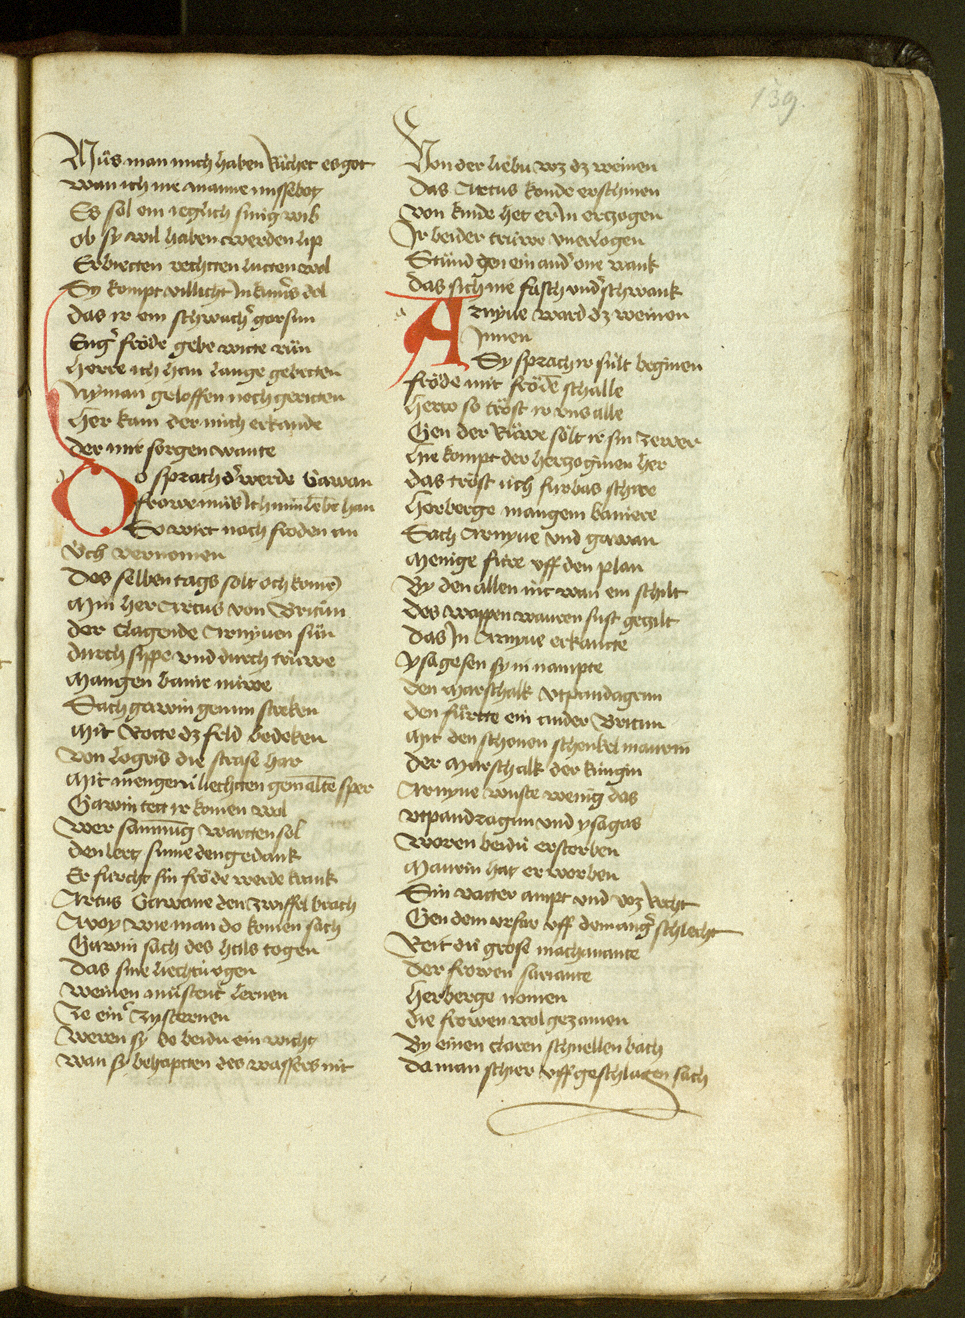 139.
Müs man mich haben Richet es got
wan ich nie manne missebot
Es sol ein ieglich sinig wib
ob sy wil haben werden lip
Erbietten rechtten lutten wol
Sy kompt villicht In kumers dol
das ir ein schwacher garsun
Sug' fröde gebe witte rün
herre ich han lange gebetten
Nyman geloffen noch geritten
Her kam der mich erkande
der mir sorgen wante
Do sprach d' werde Gawan
frowe müs Ich min lebe han
So wirt noch froden an
üch vernomen
Des selben tags solt och komen
Min her Artus von Britun
der clagende Arnyuen sün
durch sippe vnd durch trüwe
Mangen banir nüwe
Sach gawin gen im streken
Mit Rotte dz feld bedeken
Von logrid die strase har
Mit mengem liechtten gemalte sper
Gawin tett ir komen wol
Wer samnung wartten sol
den lert sume den gedank
Er furcht sin fröde werde krank
Artus Gawane den zwiffel brach
Avoy wie man do komen sach
Gawin sach des hals togen
Das sine liechtu ogen
Weinen mustent lernen
Ze ein' zysternen
Weren sy do beidu ein wicht
Wan sy behaptten des wassers nit
Von der liebu wz dz weinen
Das Artus konde erschinen
Von kinde het er In erzogen
Ir beider trüwe vnerlogen
Stünd gen ein and' one wank
das sich nie falsch vnd' schwank
Arnyue ward dz weinen
Innen
Sy sprach ir sült beginen
fröde mit fröde schalle
herre so tröst ir vns alle
Gen der Rüwe sölt ir sin ze wer
hie kompt der hertzoginen her
das tröst üch furbas schire
Herberge mangem baniere
Sach Arnyue vnd gawan
Menige fure vff den plan
By den allen nit wan ein schilt
des wappen wauren sust gezilt
Das In Arnyue erkantte
ysagesen sy in nampte
den Marschalk vtpandagrun
den fürtte ein ander Britun
Mit den schonen schenkel maurin
der Marschalk der küngin
Arnyue wuste wenig das
vtpandragun vnd ysagas
Woren beidu erstorben
Maurin hat erworben
Sin vatter ampt vnd wz Recht
Gen dem vrfar vff dem ang' schlecht
Reit du grose machanante
der frowen sariante
Herberge nomen
die frowen wol gezamen
By einen claren schnellen bach
Da man schier vff geschlagen sach